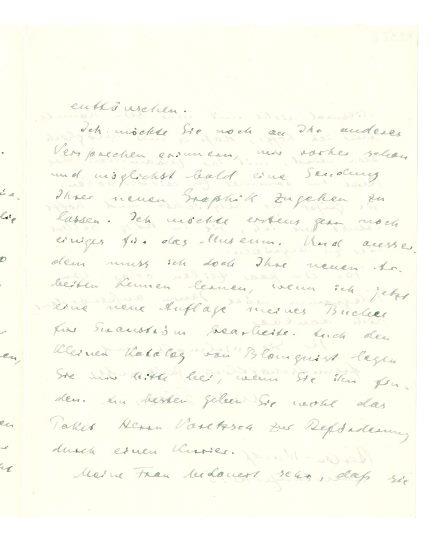 enttäuschen.
Ich möchte Sie noch an Ihr anderes
Versprechen erinnern, mir vorher schon
und möglichst bald eine Sendung
Ihrer neuen Graphik zugehen zu
lassen. Ich möchte erstens gern noch
einiges für das Museum. Und ausser-
dem muss ich doch Ihre neuen Ar-
beiten kennen lernen, wenn ich jetzt
eine neue Auflage meines Buches
für bearbeite. Auch den
kleinen Katalog von Blomquist legen
Sie mir bitte bei, wenn Sie ihn fin-
den. Am besten geben Sie wohl das
Paket Herrn zur Beförderung
durch einen Kurier.
Meine Frau bedauert sehr, daß sie